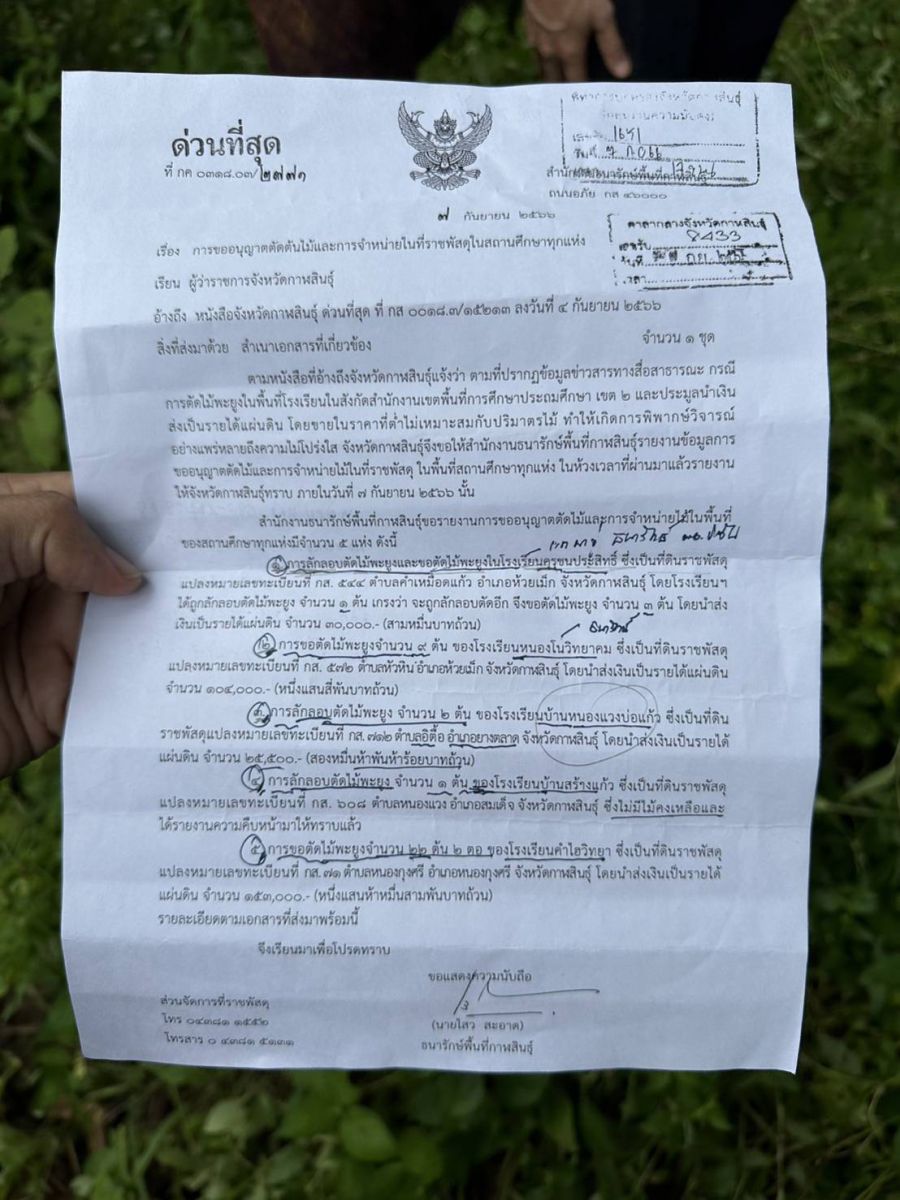 ด่วนที่สุด
ที่ กค ๐๓๑๘.๐๓/๒๗๗๑
สำนักงานธนารักษ์พื้นที่กาฬสินธุ์
ถนนอภัย กส ๔๖๐๐๐
๗ กันยายน ๒๕๖๖
ศาลากลางจังหวัดกาฬสินธุ์
เลขรับ 8433
วันที่
เวลา
เรื่อง การขออนุญาตตัดต้นไม้และการจำหน่ายในที่ราชพัสดุในสถานศึกษาทุกแห่ง
เรียน ผู้ว่าราชการจังหวัดกาฬสินธุ์
อ้างถึง หนังสือจังหวัดกาฬสินธุ์ ด่วนที่สุด ที่ กส ๐๐๑๘.๓/๑๕๒๑๓ ลงวันที่ ๔ กันยายน ๒๕๖๖
สิ่งที่ส่งมาด้วย สำเนาเอกสารที่เกี่ยวข้อง จำนวน ๑ ชุด
ตามหนังสือที่อ้างถึงจังหวัดกาฬสินธุ์แจ้งว่า ตามที่ปรากฏข้อมูลข่าวสารทางสื่อสาธารณะ กรณี
การตัดไม้พะยูงในพื้นที่โรงเรียนในสังกัดสำนักงานเขตพื้นที่การศึกษาประถมศึกษา เขต ๒ และประมูลนำเงิน
ส่งเป็นรายได้แผ่นดิน โดยขายในราคาที่ต่ำไม่เหมาะสมกับปริมาตรไม้ ทำให้เกิดการพิพากษ์วิจารณ์
อย่างแพร่หลายถึงความไม่โปร่งใส จังหวัดกาฬสินธุ์จึงขอให้สำนักงานธนารักษ์พื้นที่กาฬสินธุ์รายงานข้อมูลการ
ขออนุญาตตัดไม้และการจำหน่ายไม้ในที่ราชพัสดุ ในพื้นที่สถานศึกษาทุกแห่ง ในห้วงเวลาที่ผ่านมาแล้วรายงาน
ให้จังหวัดกาฬสินธุ์ทราบ ภายในวันที่ ๗ กันยายน ๒๕๖๖ นั้น
สำนักงานธนารักษ์พื้นที่กาฬสินธุ์ขอรายงานการขออนุญาตตัดไม้และการจำหน่ายไม้ในพื้นที่
ของสถานศึกษาทุกแห่งมีจำนวน ๕ แห่ง ดังนี้
๑. การลักลอบตัดไม้พะยูงและขอตัดไม้พะยูงในโรงเรียนคุรุชนประสิทธิ์ ซึ่งเป็นที่ดินราชพัสดุ
แปลงหมายเลขทะเบียนที่ กส. ๕๔๔ ตำบลคำเหมือดแก้ว อำเภอห้วยเม็ก จังหวัดกาฬสินธุ์ โดยโรงเรียนฯ
ได้ถูกลักลอบตัดไม้พะยูง จำนวน ๑ ต้น เกรงว่า จะถูกลักลอบตัดอีก จึงขอตัดไม้พะยูง จำนวน ๓ ต้น โดยนำส่ง
เงินเป็นรายได้แผ่นดิน จำนวน ๓๐,๐๐๐.- (สามหมื่นบาทถ้วน)
ธนารักษ์
๒. การขอตัดไม้พะยูงจำนวน ๙ ต้น ของโรงเรียนหนองโนวิทยาคม ซึ่งเป็นที่ดินราชพัสดุ
แปลงหมายเลขทะเบียนที่ กส. ๕๗๒ ตำบลหัวหิน อำเภอห้วยเม็ก จังหวัดกาฬสินธุ์ โดยนำส่งเงินเป็นรายได้แผ่นดิน
จำนวน ๑๐๔,๐๐๐.- (หนึ่งแสนสี่พันบาทถ้วน)
๓. การลักลอบตัดไม้พะยูง จำนวน ๒ ต้น ของโรงเรียนบ้านหนองแวงบ่อแก้ว ซึ่งเป็นที่ดิน
ราชพัสดุแปลงหมายเลขทะเบียนที่ กส.๗๑๒ ตำบลอิตื้อ อำเภอยางตลาด จังหวัดกาฬสินธุ์ โดยนำส่งเงินเป็นรายได้
แผ่นดิน จำนวน ๒๕,๕๐๐.- (สองหมื่นห้าพันห้าร้อยบาทถ้วน)
๔. การลักลอบตัดไม้พะยูง จำนวน ๑ ต้น ของโรงเรียนบ้านสร้างแก้ว ซึ่งเป็นที่ดินราชพัสดุ
แปลงหมายเลขทะเบียนที่ กส. ๖๐๘ ตำบลหนองแวง อำเภอสมเด็จ จังหวัดกาฬสินธุ์ ซึ่งไม่มีไม้คงเหลือและ
ได้รายงานความคืบหน้ามาให้ทราบแล้ว
๕. การขอตัดไม้พะยูงจำนวน ๒๒ ต้น ๒ ตอ ของโรงเรียนคำไฮวิทยา ซึ่งเป็นที่ดินราชพัสดุ
แปลงหมายเลขทะเบียนที่ กส.๗๑ ตำบลหนองกุงศรี อำเภอหนองกุงศรี จังหวัดกาฬสินธุ์ โดยนำส่งเงินเป็นรายได้
แผ่นดิน จำนวน ๑๕๓,๐๐๐.- (หนึ่งแสนห้าหมื่นสามพันบาทถ้วน)
รายละเอียดตามเอกสารที่ส่งมาพร้อมนี้
จึงเรียนมาเพื่อโปรดทราบ
ขอแสดงความนับถือ
(นายไสว สะอาด)
ธนารักษ์พื้นที่กาฬสินธุ์
ส่วนจัดการที่ราชพัสดุ
โทร ๐๔๓๘๑ ๑๕๕๒
โทรสาร ๐ ๔๓๘๑ ๕๑๓๑